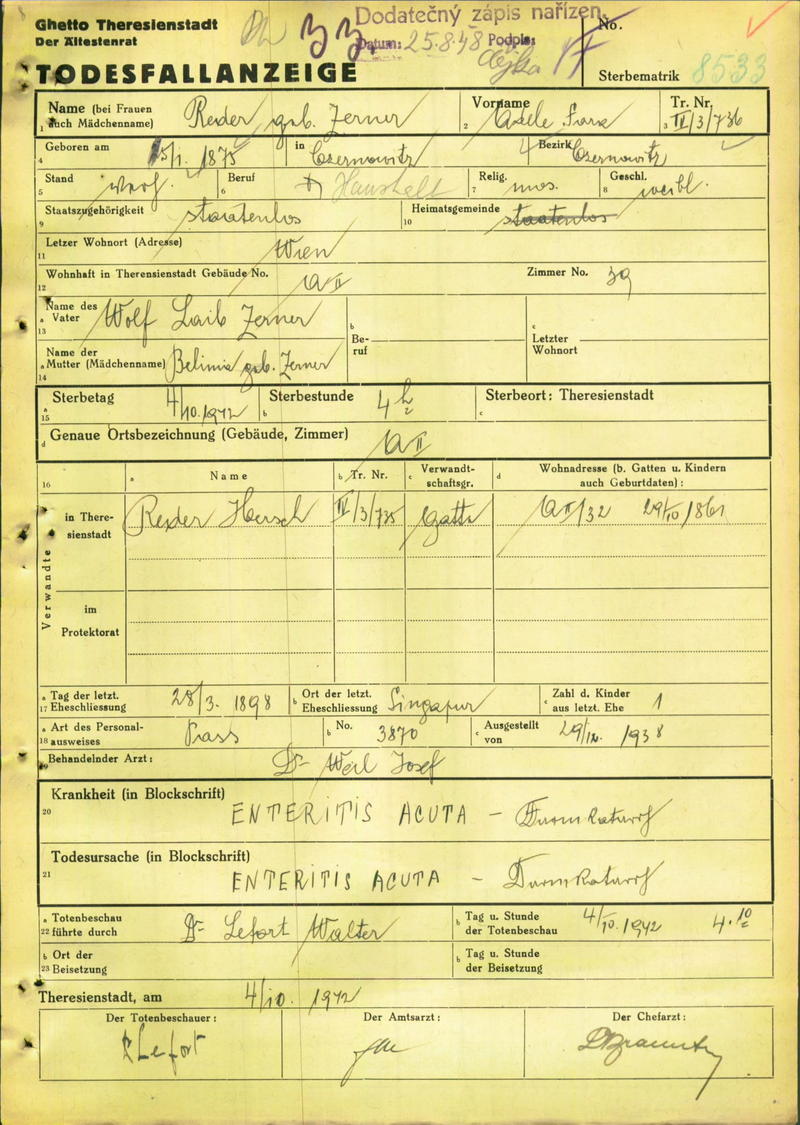 Ghetto Theresienstadt
Der Ältestenrat
Dodatečný zápis nařízen.
Datum: 25.8.48 Podpis:
No.
TODESFALLANZEIGE
Sterbematrik 8533
Name (bei Frauen auch Mädchenname) Reder geb. Zerner Vorname Adele Sara Tr. Nr. IV/3/736
1 2 3
Geboren am 15/1. 1875 in Czernowitz Bezirk Czernowitz
4
Stand verh. Beruf Haushalt Relig. mos. Geschl. weibl.
5 6 7 8
Staatszugehörigkeit staatenlos Heimatsgemeinde staatenlos
9 10
Letzer Wohnort (Adresse) Wien
11
Wohnhaft in Therensienstadt Gebäude No. QII Zimmer No. 39
12
Name des Vater Wolf Laib Zerner b Beruf c Letzter Wohnort
a 13
Name der Mutter (Mädchenname) geb. Zerner
a 14
Sterbetag 4/10.1942 Sterbestunde 4h Sterbeort: Theresienstadt
a 15 b c
d Genaue Ortsbezeichnung (Gebäude, Zimmer) QII
16 a Name b Tr. Nr. c Verwandtschaftsgr. d Wohnadresse (b. Gatten u. Kindern auch Geburtdaten):
Verwandte
in Theresienstadt Reder Hersch IV/3/735 Gatte QII/32 29/10/1861
im Protektorat
a 17 Tag der letzt. Eheschliessung 28/3. 1898 b Ort der letzt. Eheschliessung Singapur c Zahl d. Kinder aus letzt. Ehe 1
a 18 Art des Personalausweises Pass b No. 3870 c Ausgestellt von 29/12. 1938
19 Behandelnder Arzt: Dr Weil Josef
Krankheit (in Blockschrift)
20 ENTERITIS ACUTA - Darmkatarrh
Todesursache (in Blockschrift)
21 ENTERITIS ACUTA - Darmkatarrh
a 22 Totenbeschau führte durch Dr Lefort Walter b Tag u. Stunde der Totenbeschau 4/10.1942 4.10
b 23 Ort der Beisetzung b Tag u. Stunde der Beisetzung
Theresienstadt, am 4/10. 1942
Der Totenbeschauer: Der Amtsarzt: Der Chefarzt:
Lefort